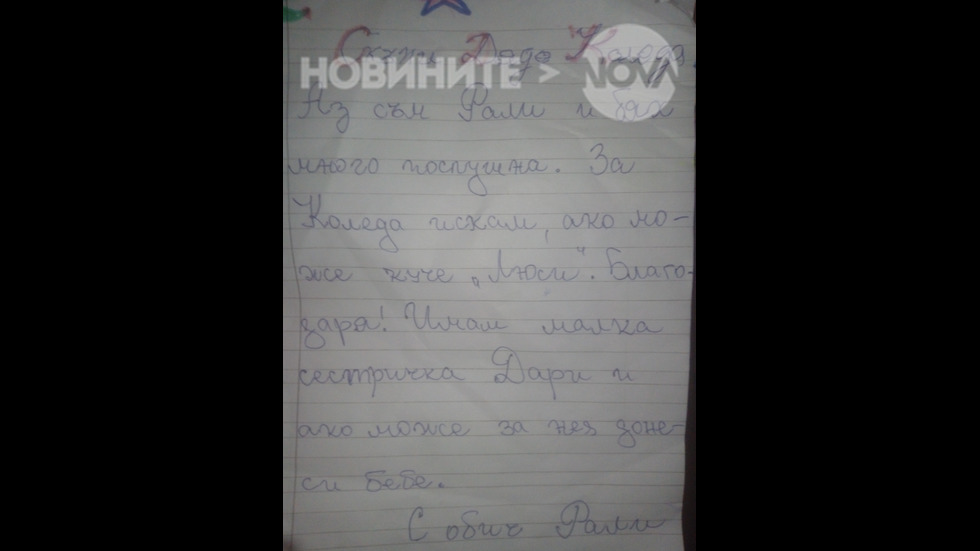 Скъпи Дядо Коледа,
НОВИНИТЕ > NOVA
Аз съм Рали и бях
много послушна. За
Коледа искам, ако мо-
же куче „Люси“. Благо-
даря! Имам малка
сестричка Дари и
ако може за нея доне-
си бебе.
С обич Рали